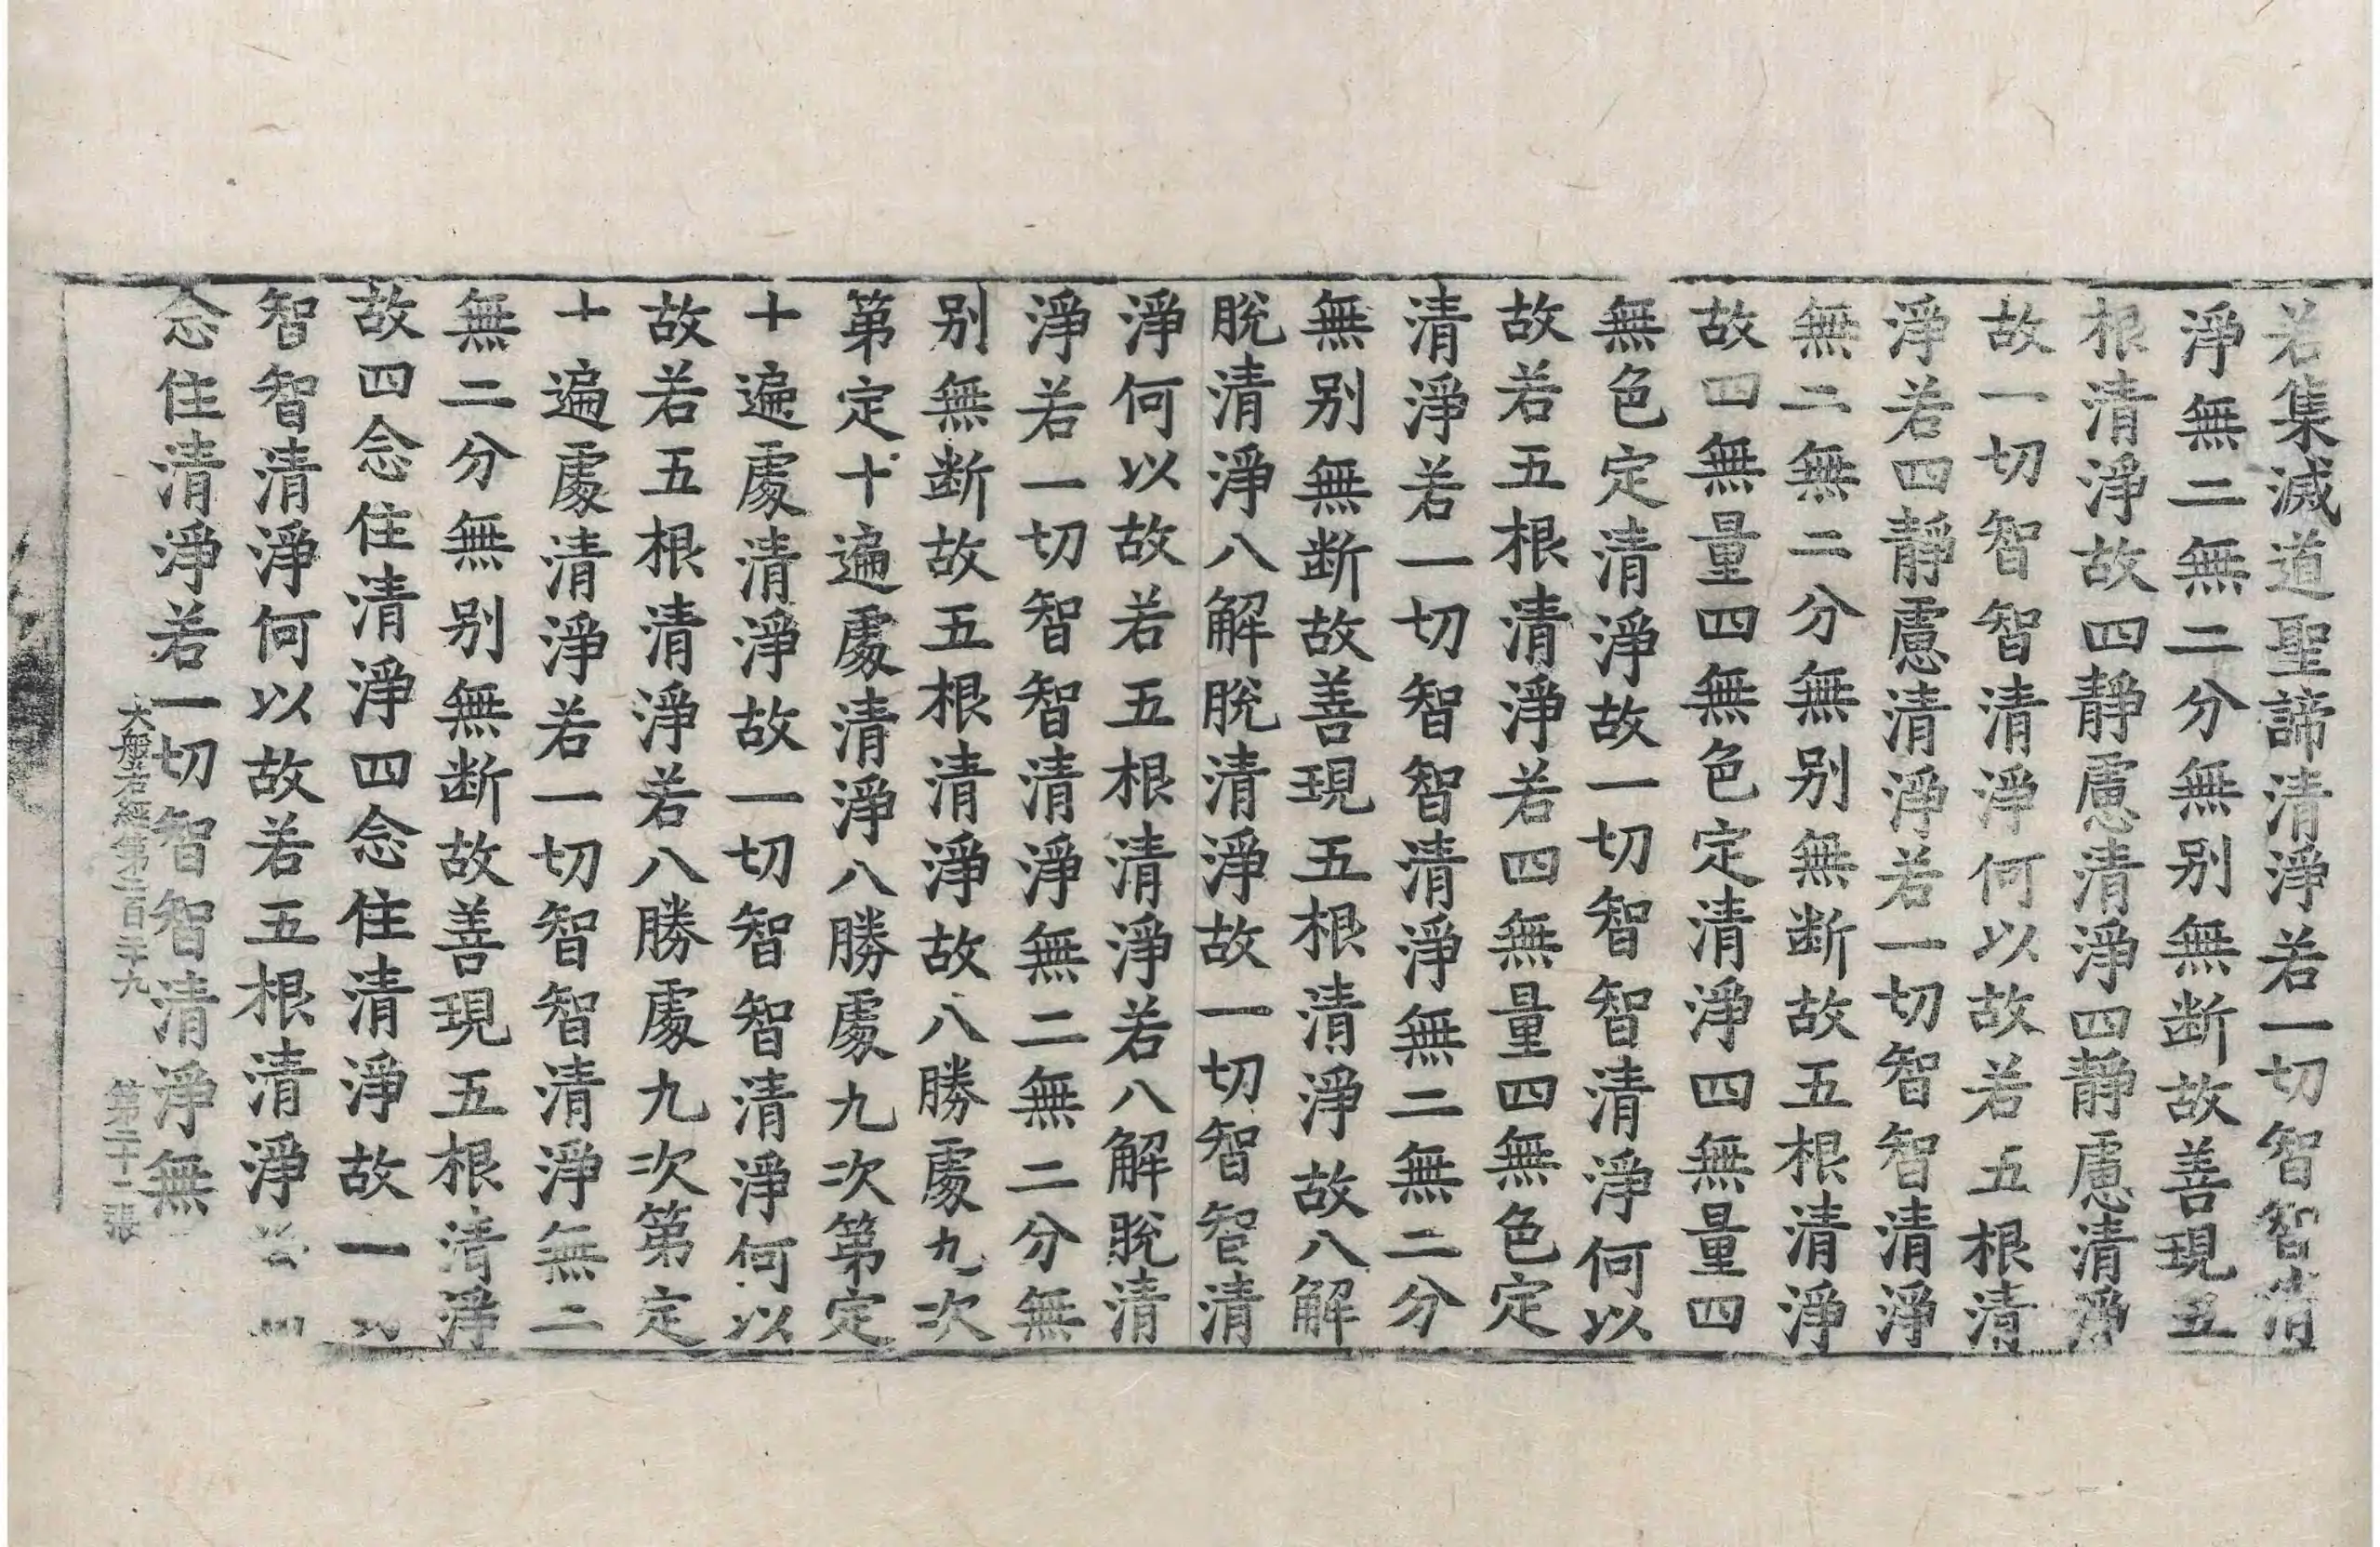 若集滅道聖諦清淨若一切智智清
淨無二無二分無别無断故善現五
根清淨故四靜慮清淨四靜慮清淨
故一切智智清淨何以故若五根清
淨若四靜慮清淨若一切智智清淨
無二無二分無别無断故五根清淨
故四無量四無色定清淨四無量四
無色定清淨故一切智智清淨何以
故若五根清淨若四無量四無色定
清淨若一切智智清淨無二無二分
無别無断故善現五根清淨故八解
脫清淨八解脫清淨故一切智智清
淨何以故若五根清淨若八解脫清
淨若一切智智清淨無二無二分無
别無断故五根清淨故八勝處九次
第定十遍處清淨八勝處九次第定
十遍處清淨故一切智智清淨何以
故若五根清淨若八勝處九次第定
十遍處清淨若一切智智清淨無二
無二分無别無断故善現五根清淨
故四念住清淨四念住清淨故一
智智清淨何以故若五根清淨
念住清淨若一切智智清淨無
大般若經第二百二十九 第二十二張